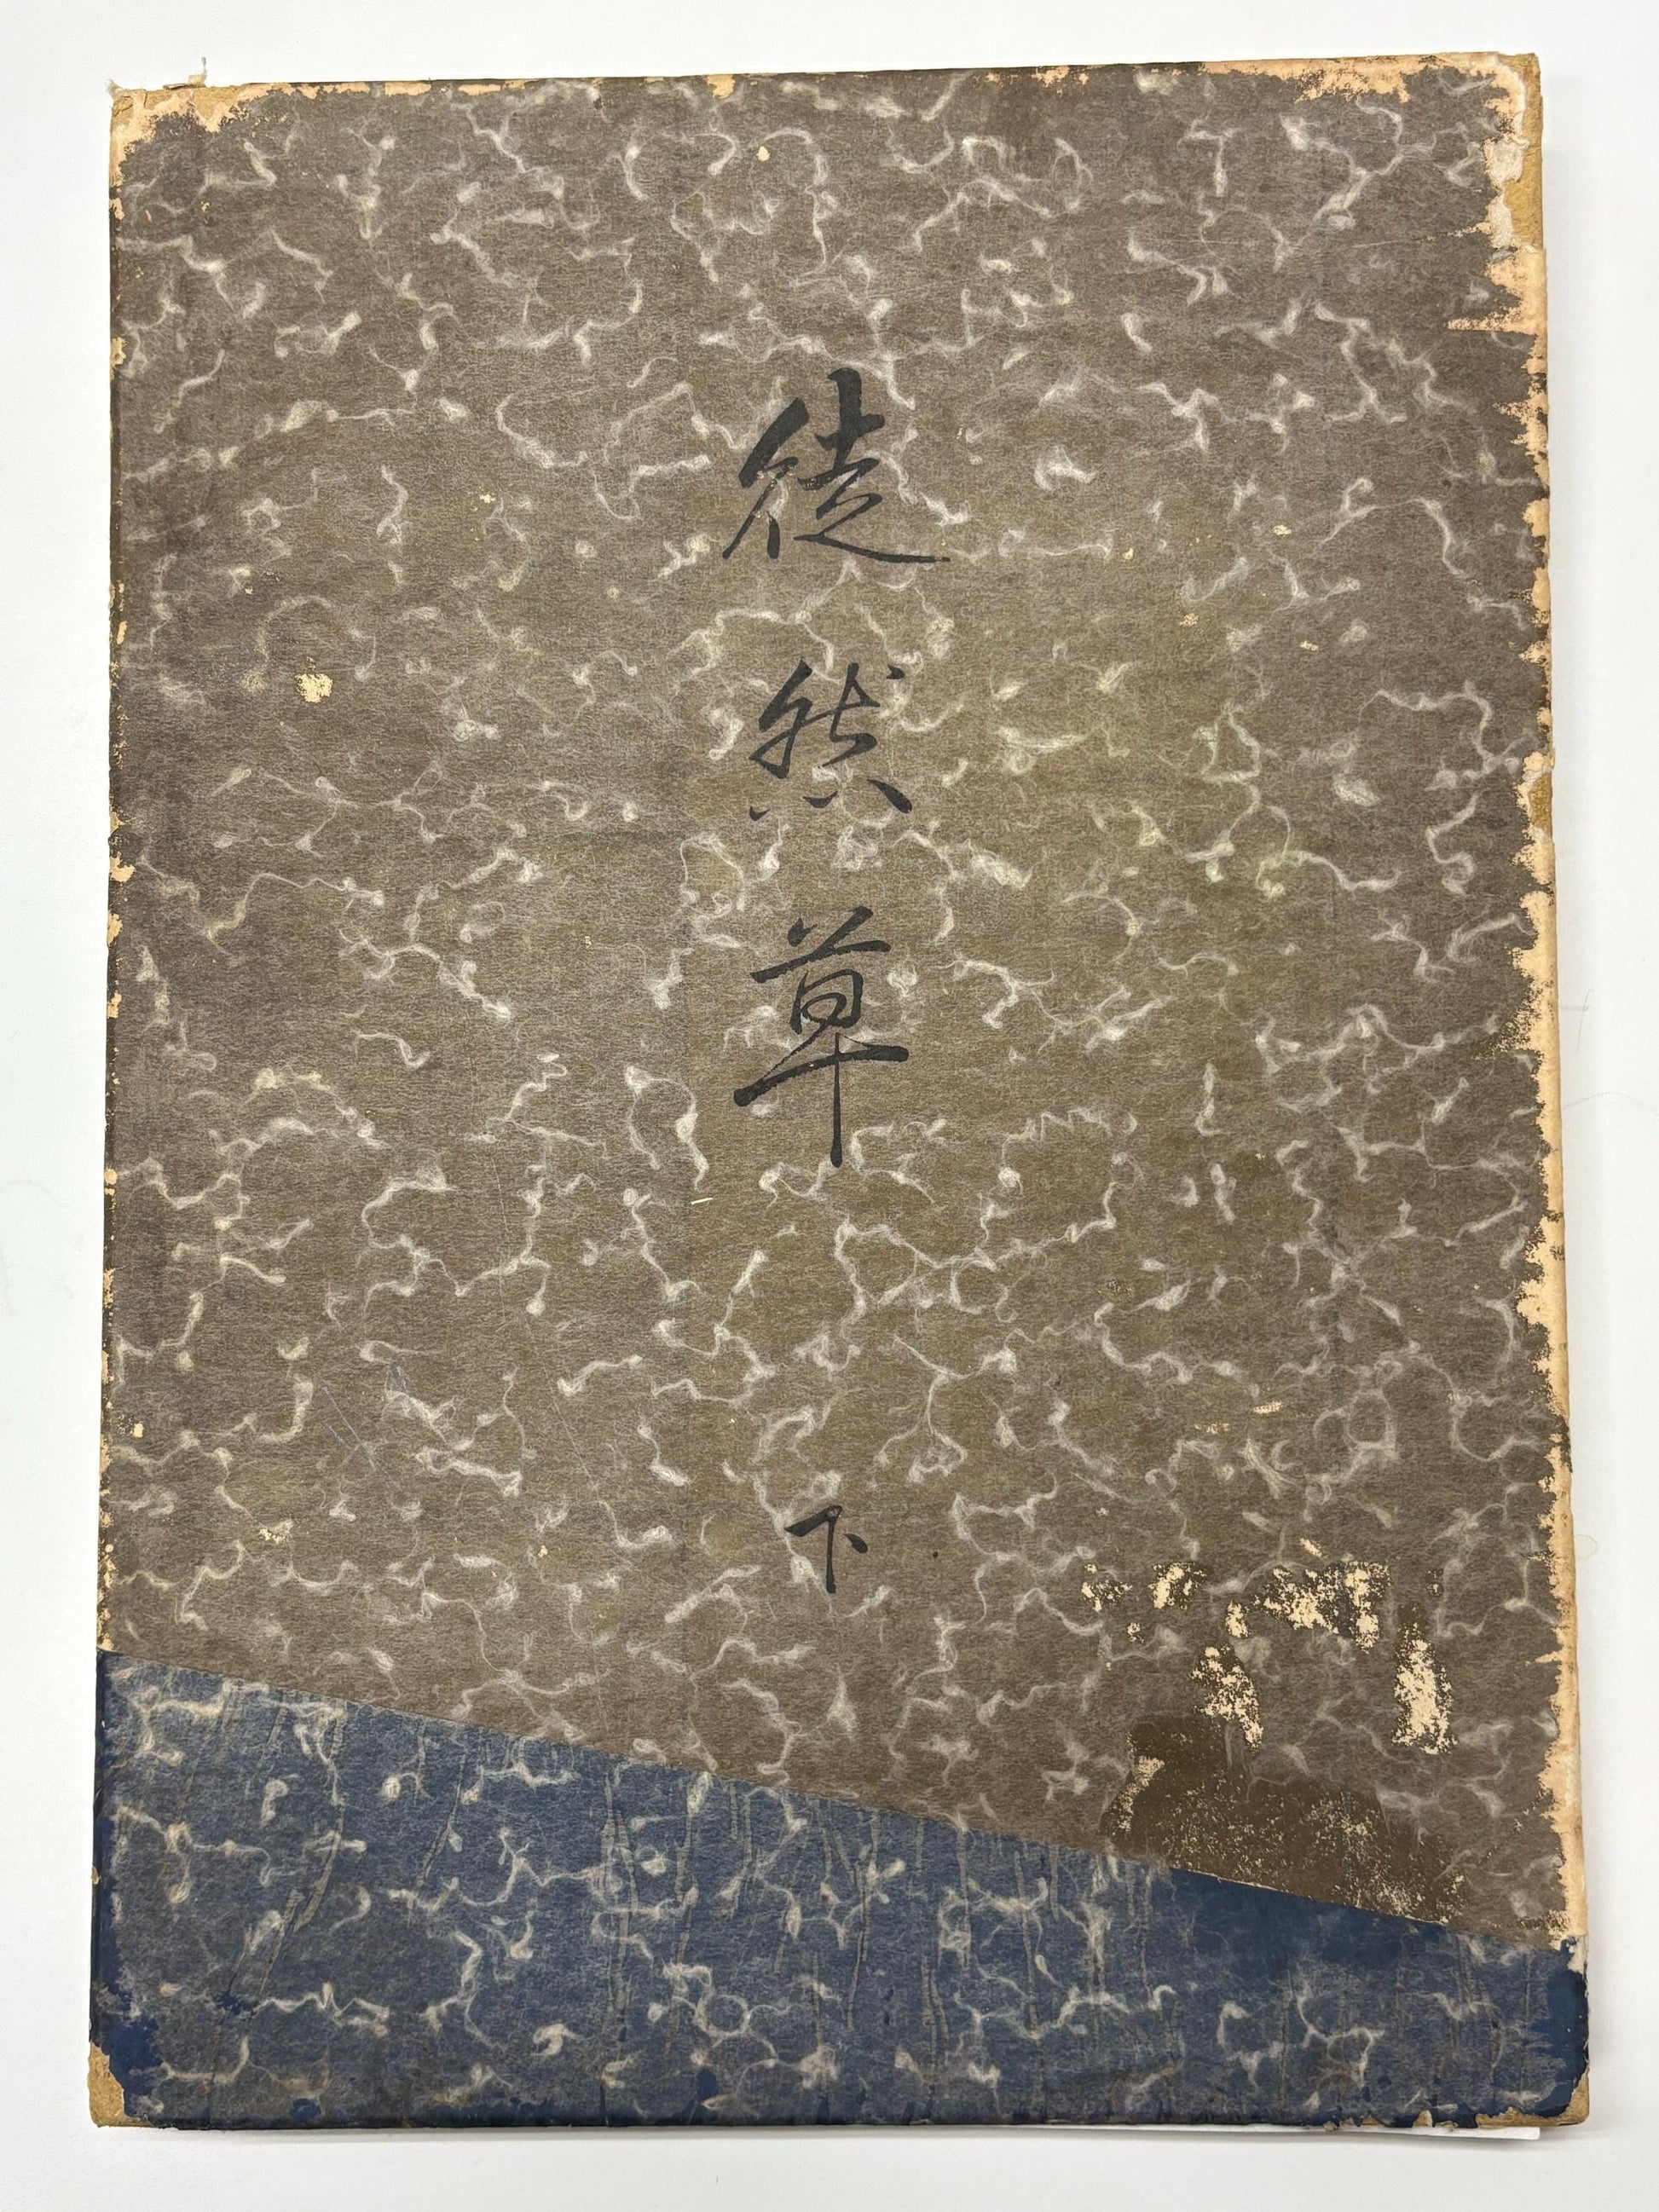 徒然草
下